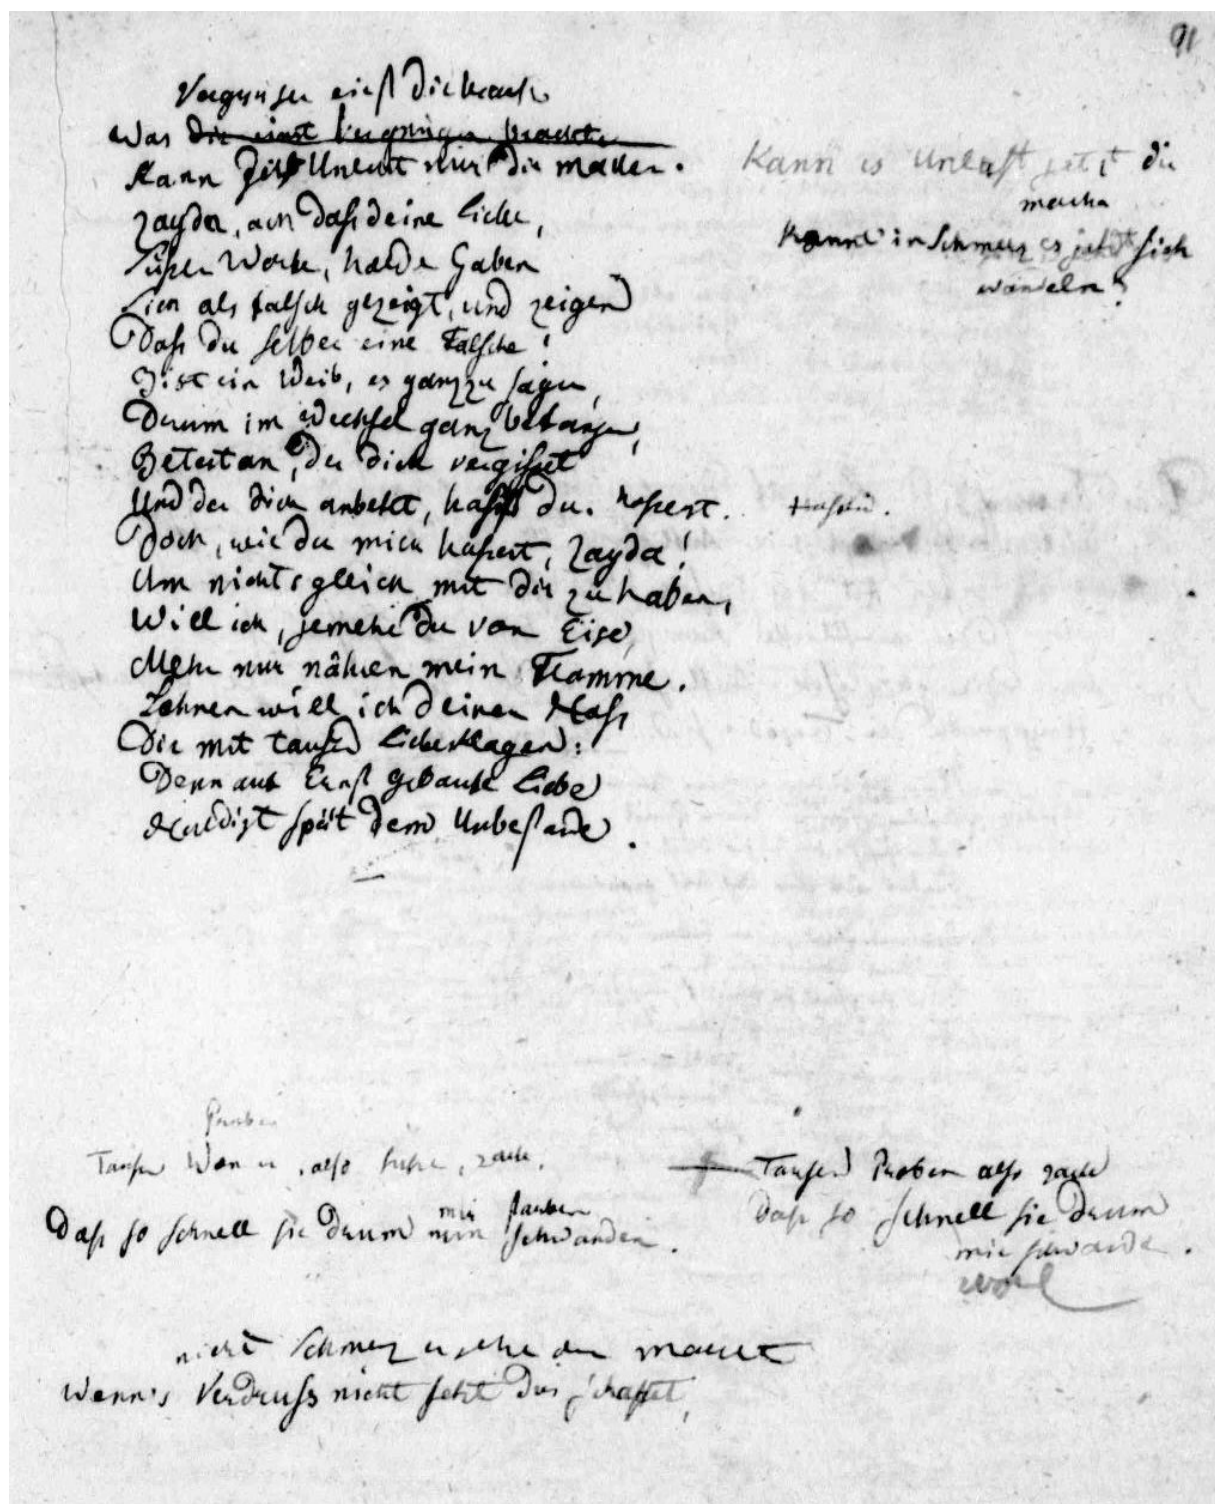 91
Vergnügen einst dir brachte
Was dir einst Vergnügen brachte
Kann jetzt Unlust nur dir machen.
Zayda, ach daß deine Liebe,
Süßen Worte, holde Gaben
Sich als falsch gezeigt, und zeigen
Daß du selber eine Falsche!
Bist ein Weib, es ganz zu sagen,
Drum im Wechsel ganz befangen,
Betest an, der dich vergisset
Und der dich anbetet, du. hassest.
hassen.
Doch, wie du mich hassest, Zayda!
Um nichts gleich mit dir zu haben,
Will ich, jemehr du von Eise,
Mehr nur nähren mein Flamme.
Lohnen will ich deinen Hass
Dir mit tausend Liebesklagen:
Denn auf Ernst gebaute Liebe
Huldigt spät dem Unbestande.
Kann es Unlust jetzt dir
machen
Kann in Schmerz es jetzt sich
wandeln?
Proben
Tausend, also, zarte,
mir
Daß so schnell sie drum schwanden.
Tausend Proben also zarte
Daß so schnell sie drum
mir schwanden.
nicht Schmerz machet
Wenn's Verdruß nicht jetzt dir schaffet,